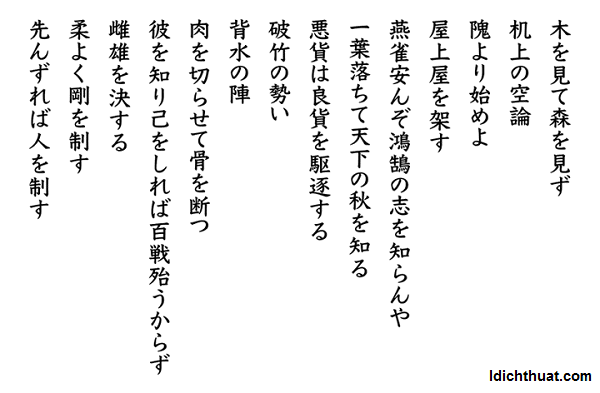 木を見て森を見ず
机上の空論
隗より始めよ
屋上屋を架す
燕雀安んぞ鴻鵠の志を知らんや
一葉落ちて天下の秋を知る
悪貨は良貨を駆逐する
破竹の勢い
背水の陣
肉を切らせて骨を断つ
彼を知り己をしれば百戦殆うからず
雌雄を決する
柔よく剛を制す
先んずれば人を制す
Idichthuat.com